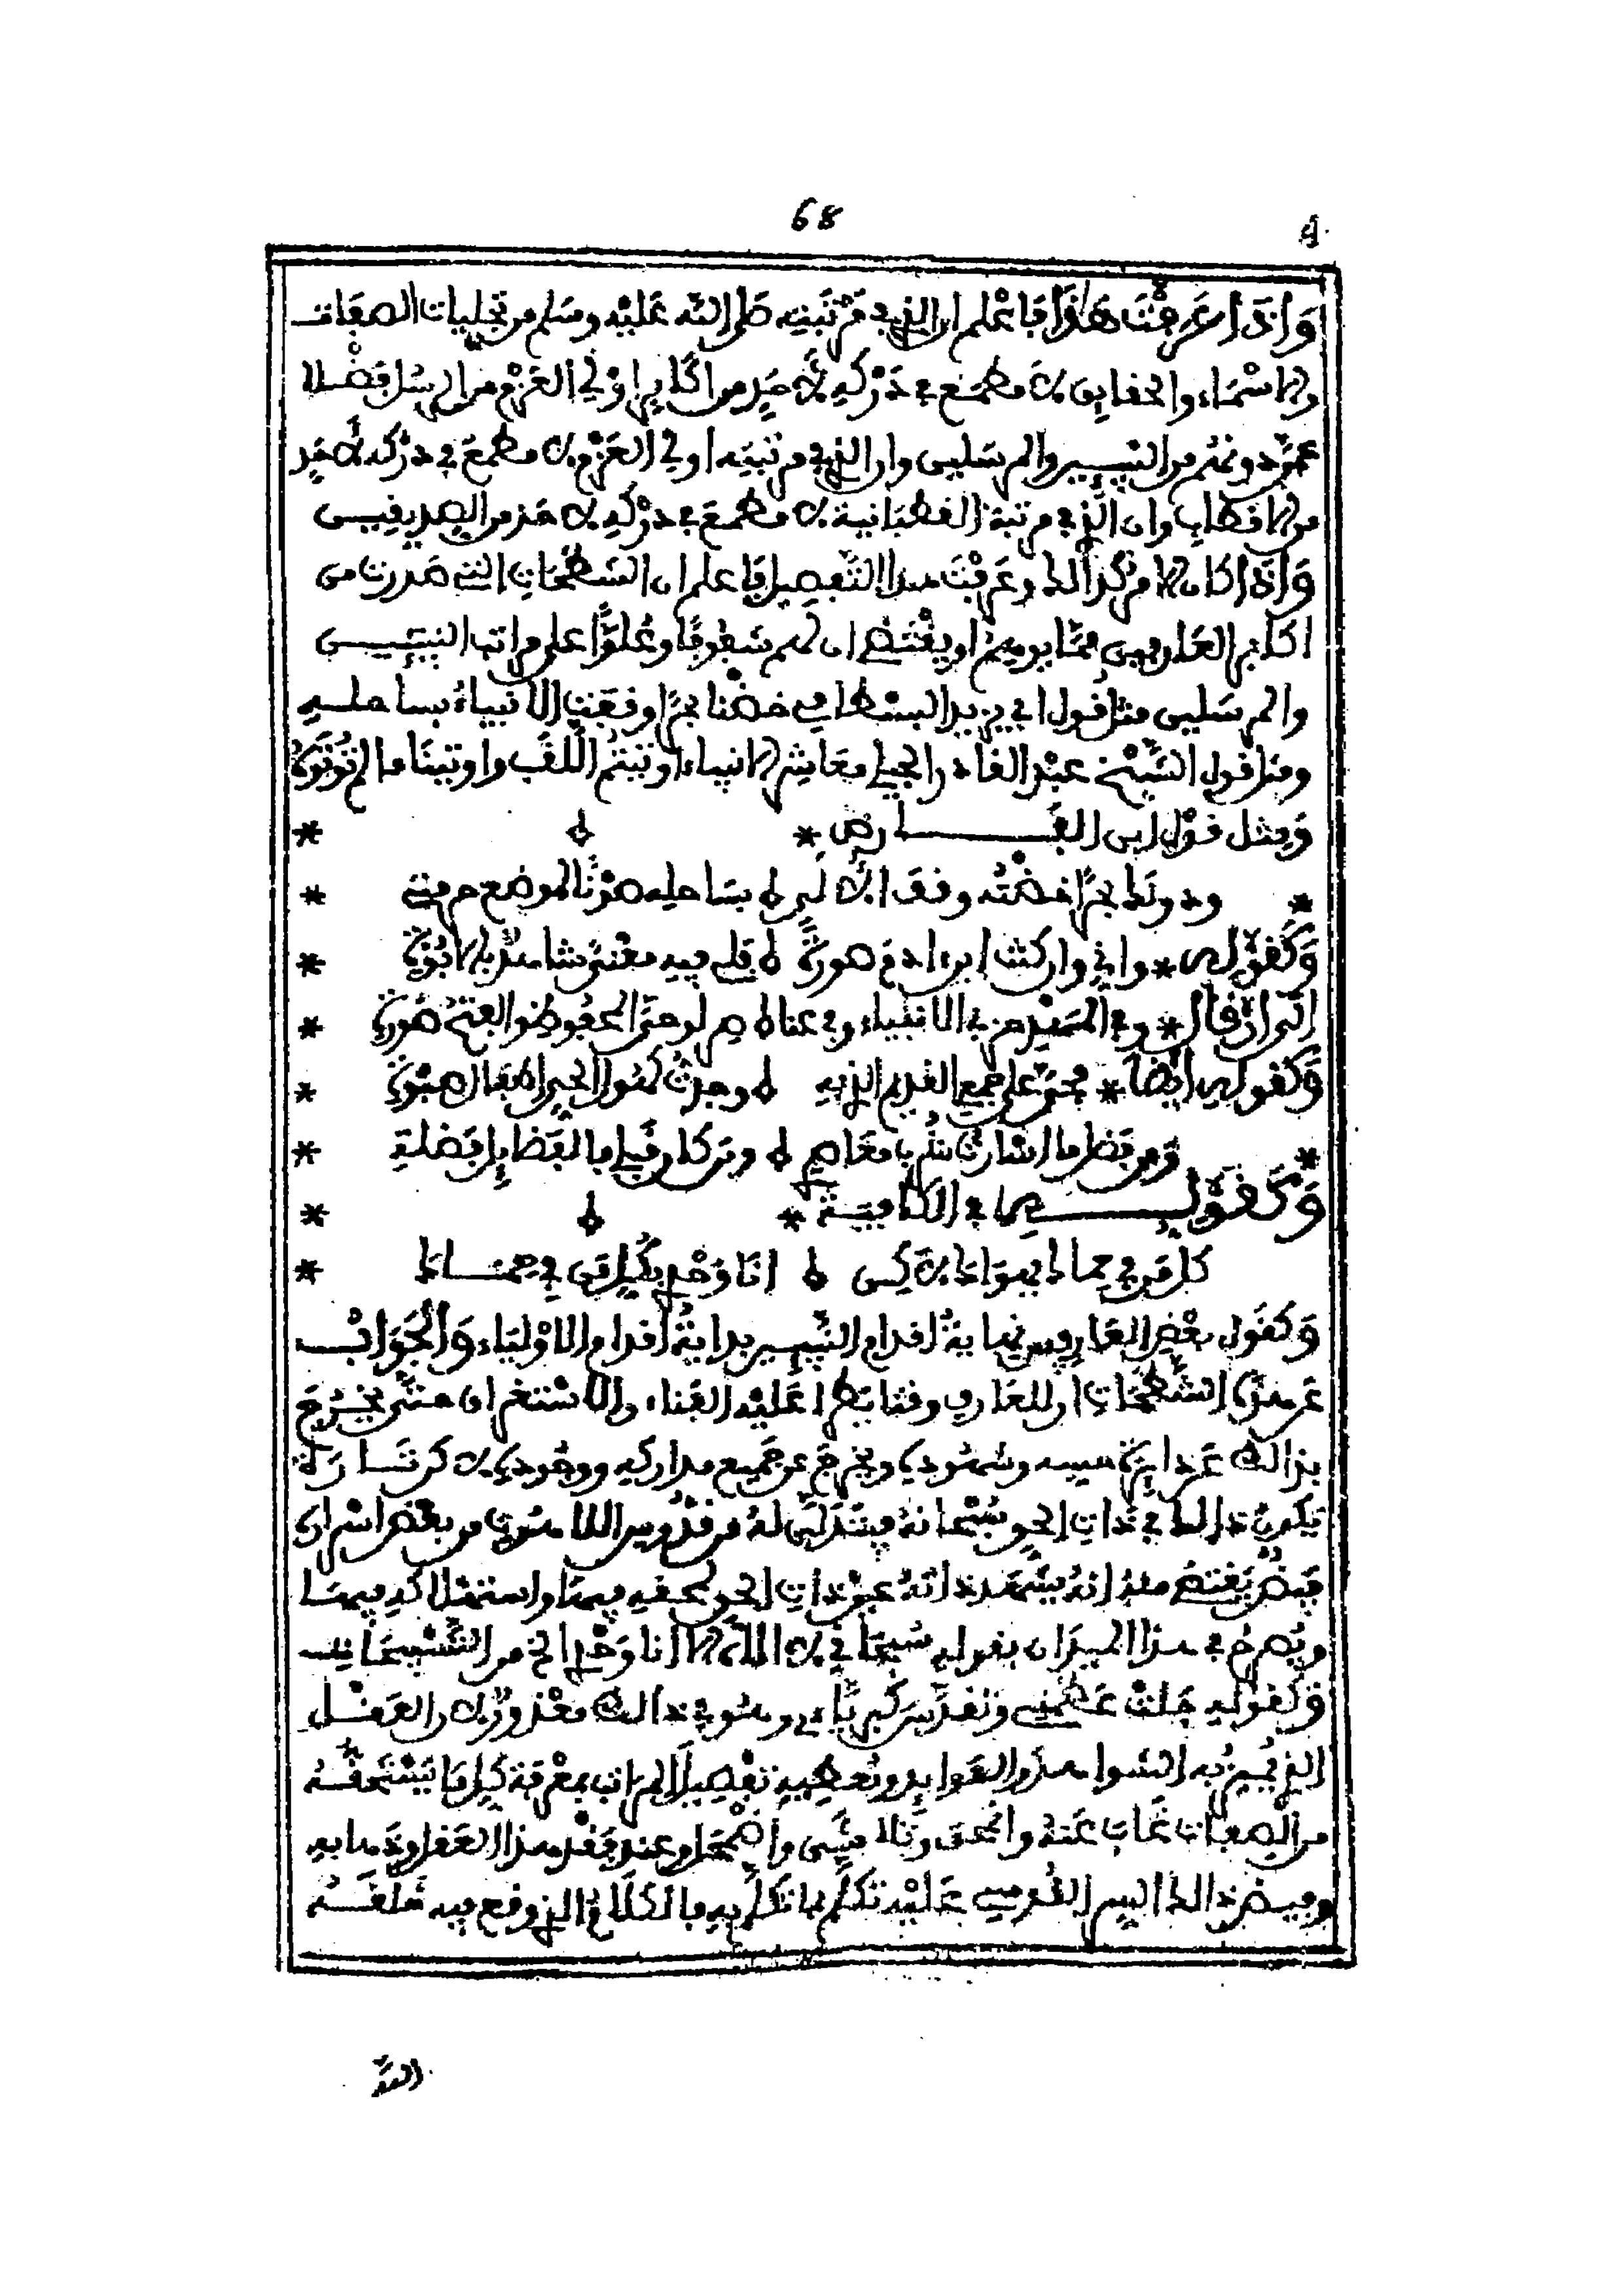 68
وَإِذَا عَرَفْتَ هَذَا فَاعْلم ان الذي في مَرْتَبَتِه صَلى اللّه عَليْه وسَلم من تجليات الصفات
والاسْمَاء والحقايق لا مطمَع في دَرْكِه لأحَدٍ من اكابر اوْلي العَزْم من الرسُل فَضْلا
عمَّن دونهُم من النبيين والمرسَليِن وان الذي في مرتبَته اولي العَزْم لا مطمَعَ في دَرْكه لأحَدٍ
من الاقطاب وان الذي في مرتبة القطبانية لا مطمَعَ في دَرْكِه لاحَد من الصديقيــن
وَإِذَا كان الامر كذالك وعَرَفْتَ هذا التّفصيل فاعلم ان الشطَحَاتِ التي صَدرت من
اكابر العَارفين ممّا يوهِمُ او يقْتَضي ان لهم شفُوفًا وعُلُوًّا على مراتب النبيئيــن
والمرسَلين مثل قول ابي يزيد البسْطامي خضْنا بحرًا وقفَتِ الأنبياءُ بساحلــه
ومثل قول الشّيْخ عبْد القادر الجيلي معَاشر الانبياء اوتيتمُ اللّقَب واوتينَا ما لم تُوتَوْهُ
وَمثل قوْل ابن الفــــارض *
* ودونك بحرًا خضْتُه وقف الألى بسَاحله صَوْنًا لموضع حرمتي *
وَكَقوْلِه * واني وان كنت ابن ءادم صورةً فلي فيه معْنًى شاهدٌ بالابُوّةِ *
الى ان قال * وفي المهْد حزبي الانبياء وفي عناصِري لوحيَ المحفوظ والفتحُ سُورتي *
وَكَقولِه ايْضاً * فحيّ على جمعي القديم الذي به وجدتُ كهُولَ الحي اطفال صِبْوةِ *
* وَمن فضل ما اسْارتُ شرْبُ مُعَاصِري ومن كان قبلي فالفضايل فضلتي *
وَكَقوْلِـــــه في الكافية *
كل من في حماك يهوَاك لاكِن انا وَحْدِي بكُلِّ من في حمــاك *
وَكَقول بعْضِ العَارفين نهاية أقدام النبيين بداية أقدام الأوْليَاء وَالْجَوَابُ
عَن هذه الشّطحَاتِ ان للعَارف وقتا يَطرأ عَليْه الفَناء والاسْتغراق حتى يخْرُجَ
بذالك عَن دايرة حسِّه وشهُوده ويخرج عن جَميع مداركه ووجُوده لاكن تَــارة
يكونُ ذالك في ذات الحق سُبْحانهُ فيتَدَلى لهُ من قدُس اللاهُوت من بعْض اسْراره
فيْضٌ يَقتضي منهُ انهُ يشْهَد ذاتهُ عين ذات الحق لمحقه فيهَا واستهلاكه فيهَـا
ويُصَرحُ في هذا الميدان بقوله سُبْحَاني لا اله الا أنا وَحْدِي الخ من التّسْبيحَاتِ
وَكقولِه جَلتْ عَظَمتي وتقدّسَ كبريَاءي وهُو في ذالك معْذورٌ لان العقْــل
الذي يُميزُ به الشواهدَ والعَوايدَ ويُعطيهِ تفْصيلَ المراتب بمعْرفَة كل مَا يَسْتَحقُّــهُ
من الصفات غَابَ عَنهُ وامّحق وتلاشى واضْمَحَلّ وعند فَقْد هذا العَقل وذهابه
وفيض ذالك السر القُدسي عَليْه تكلّم بما تكلّم به فالكلام الذي وقع فيه خلَقــهُ